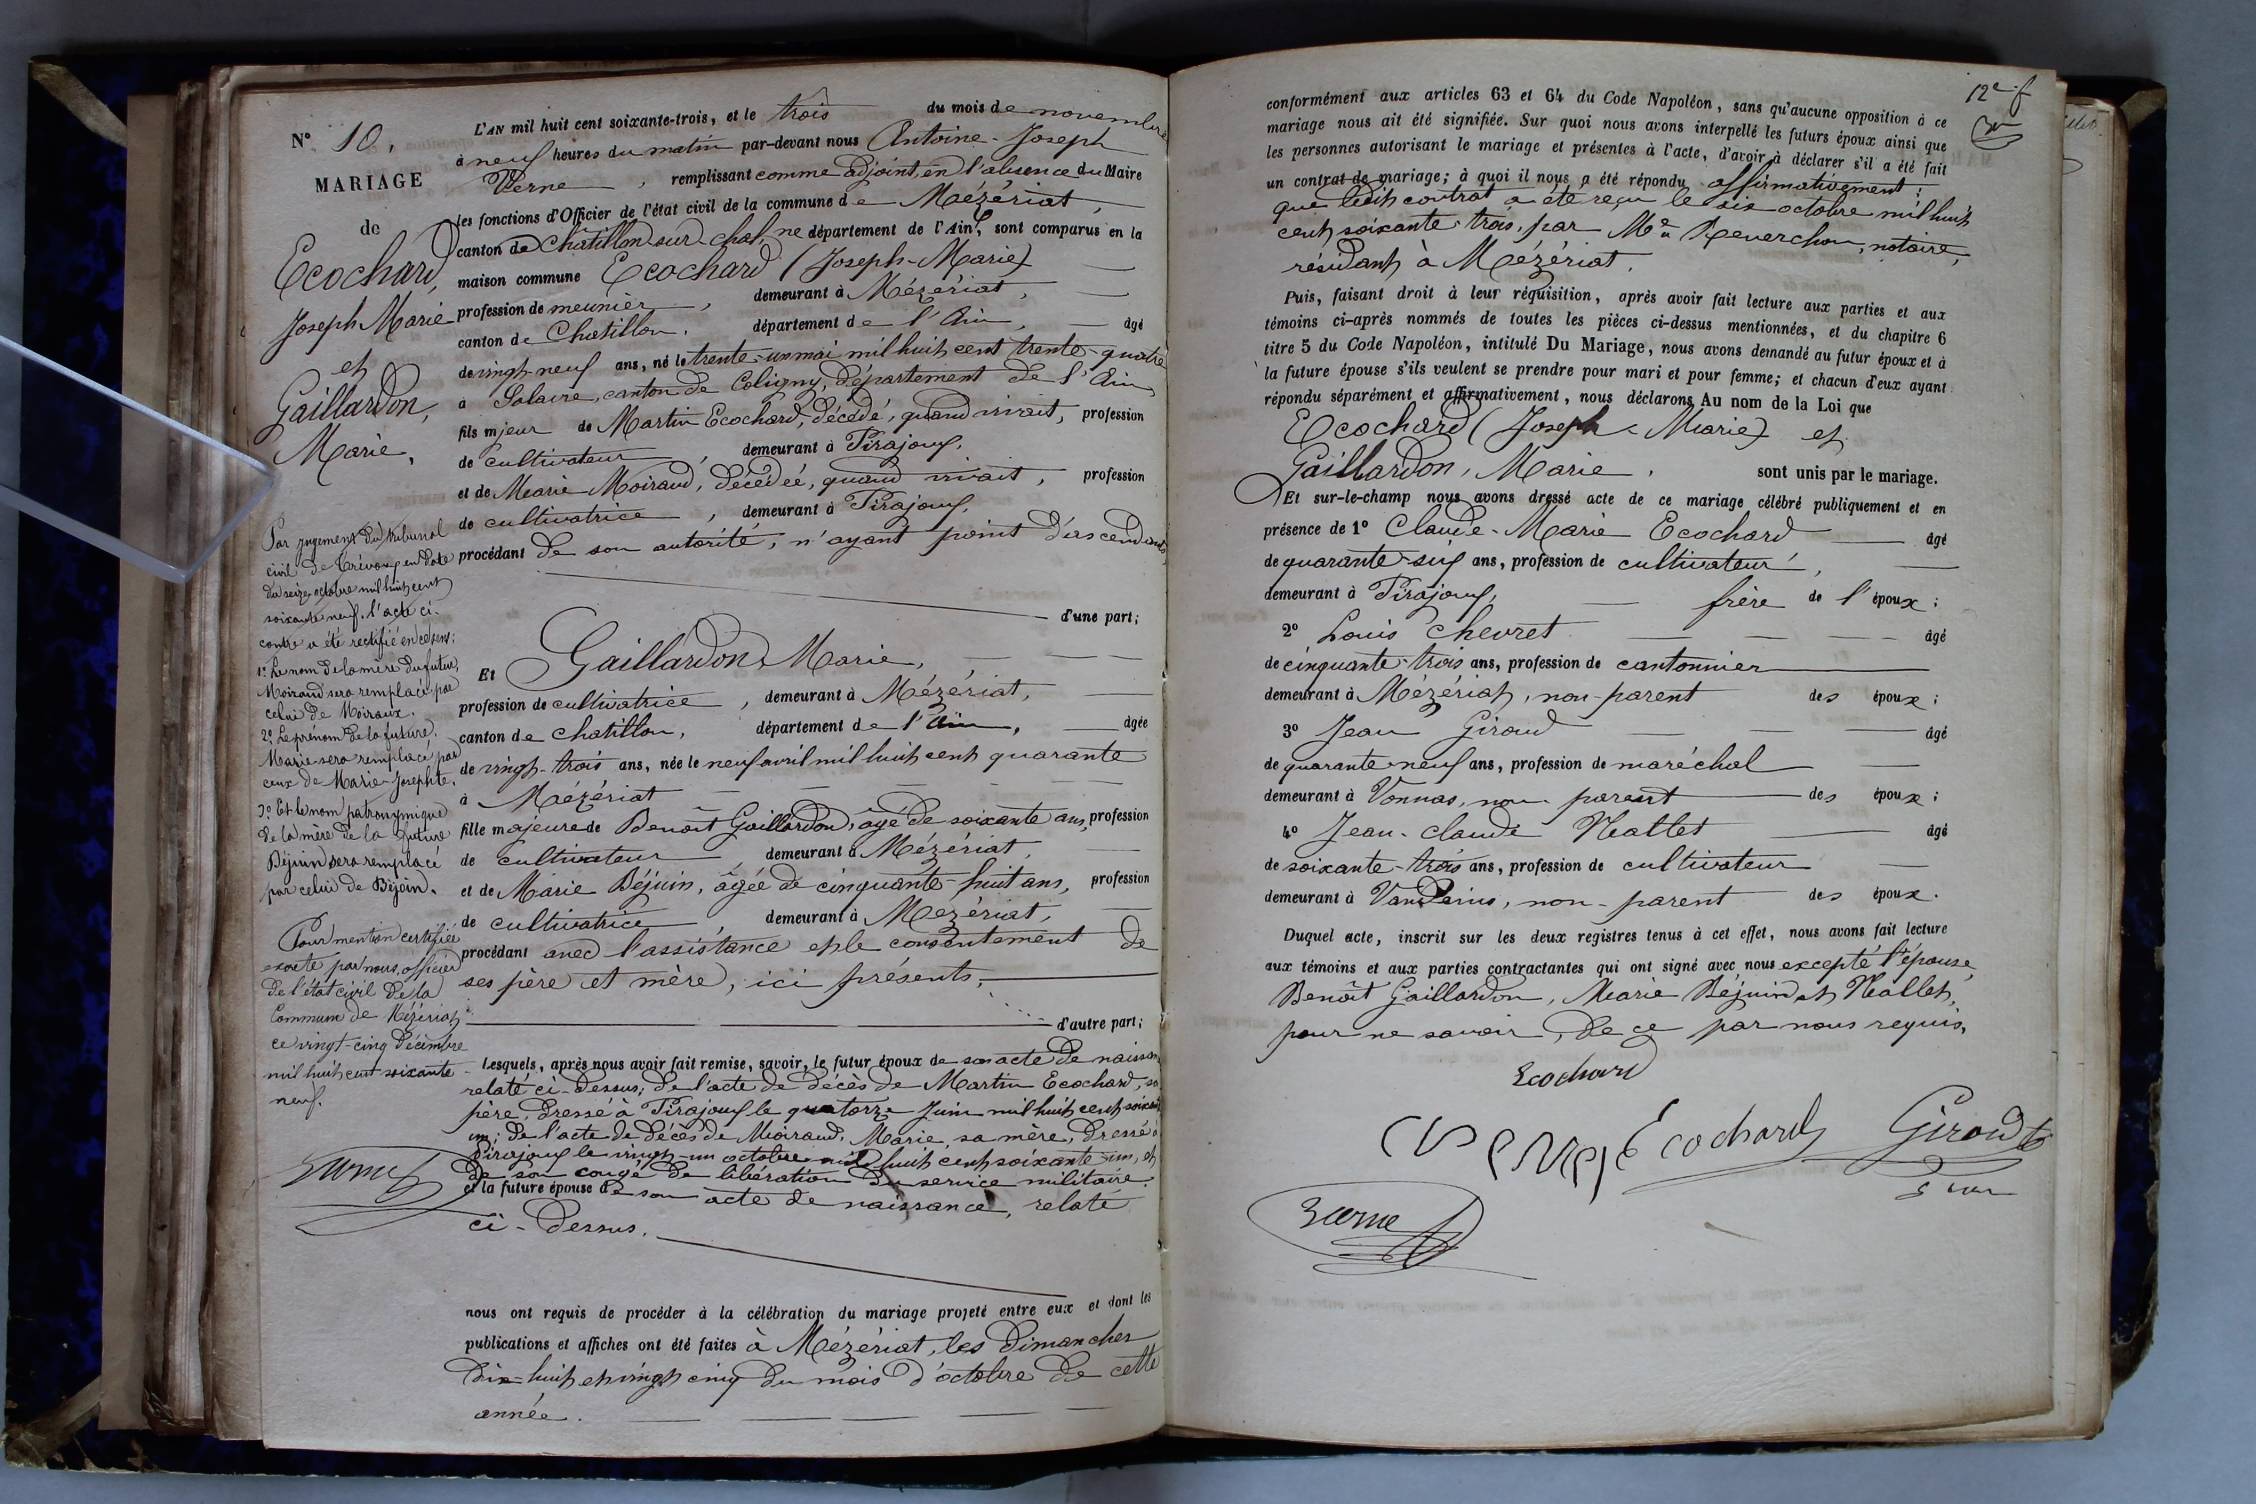 N° 10.
MARIAGE
de
Ecochard,
Joseph Marie
et
Gaillardon,
Marie,
Par jugement du tribunal
civil de Trévoux en date
du seize octobre mil huit cent
soixante neuf, l'acte ci-
contre a été rectifié en ce sens:
1° Le nom de la mère du futur,
Moiraud sera remplacé par
celui de Moiraux.
2° Le prénom de la future,
Marie sera remplacé par
ceux de Marie-Josephte.
3° Et le nom patronymique
de la mère de la future
Béjuin sera remplacé
par celui de Bijoin.
Pour mention certifiée
exacte par nous, officier
de l'état civil de la
Commune de Mézériat
ce vingt-cinq décembre
mil huit cent soixante
neuf.
Verne
L'AN mil huit cent soixante-trois, et le trois du mois de novembre
à neuf heures du matin par-devant nous Antoine-Joseph
Verne, remplissant comme adjoint, en l'absence du Maire
les fonctions d'Officier de l'état civil de la commune de Mézériat,
canton de Châtillon sur chal.ne département de l'Ain, sont comparus en la
maison commune Ecochard (Joseph-Marie)
profession de meunier, demeurant à Mézériat,
canton de Chatillon, département de l'Ain, âgé
de vingt-neuf ans, né le trente-un mai mil huit cent trente-quatre
à Salavre, canton de Coligny, département de l'Ain
fils mjeur de Martin Ecochard, décédé, quand vivait, profession
de cultivateur, demeurant à Pirajoux,
et de Marie Moiraud, décédée, quand vivait, profession
de cultivatrice, demeurant à Pirajoux,
procédant de son autorité, n'ayant point d'ascendants
d'une part;
Et Gaillardon, Marie,
profession de cultivatrice, demeurant à Mézériat,
canton de Chatillon, département de l'Ain, âgée
de vingt-trois ans, née le neuf avril mil huit cent quarante
à Mézériat
fille majeure de Benoît Gaillardon, âgé de soixante ans, profession
de cultivateur, demeurant à Mézériat,
et de Marie Béjuin, âgée de cinquante-huit ans, profession
de cultivatrice demeurant à Mézériat,
procédant avec l'assistance et le consentement de
ses père et mère, ici présents,
d'autre part;
Lesquels, après nous avoir fait remise, savoir, le futur époux de son acte de naissance
relaté ci-dessus; de l'acte de décès de Martin Ecochard, son
père, dressé à Pirajoux le quatorze Juin mil huit cent soixante
un; de l'acte de décès de Moiraud, Marie, sa mère, dressé à
Pirajoux le vingt-un octobre mil huit cent soixante-un, et
de son congé de libération du service militaire.
et la future épouse de son acte de naissance, relaté
ci-dessus.
nous ont requis de procéder à la célébration du mariage projeté entre eux et dont les
publications et affiches ont été faites à Mézériat, les dimanches
dix-huit et vingt cinq du mois d'octobre de cette
année.
12e f
conformément aux articles 63 et 64 du Code Napoléon, sans qu'aucune opposition à ce
mariage nous ait été signifiée. Sur quoi nous avons interpellé les futurs époux ainsi que
les personnes autorisant le mariage et présentes à l'acte, d'avoir à déclarer s'il a été fait
un contrat de mariage; à quoi il nous a été répondu affirmativement;
que ledit contrat a été reçu le six octobre mil huit
cent soixante-trois, par Me Reverchon, notaire,
résidant à Mézériat.
Puis, faisant droit à leur réquisition, après avoir fait lecture aux parties et aux
témoins ci-après nommés de toutes les pièces ci-dessus mentionnées, et du chapitre 6
titre 5 du Code Napoléon, intitulé Du Mariage, nous avons demandé au futur époux et à
la future épouse s'ils veulent se prendre pour mari et pour femme; et chacun d'eux ayant
répondu séparément et affirmativement, nous déclarons Au nom de la Loi que
Ecochard (Joseph-Marie) et
Gaillardon, Marie, sont unis par le mariage.
Et sur-le-champ nous avons dressé acte de ce mariage célébré publiquement et en
présence de 1° Claude-Marie Ecochard âgé
de quarante-six ans, profession de cultivateur,
demeurant à Pirajoux, frère de l'époux;
2° Louis Chevret âgé
de cinquante-trois ans, profession de cantonnier
demeurant à Mézériat, non-parent des époux;
3° Jean Giroud âgé
de quarante-neuf ans, profession de maréchal
demeurant à Vonnas, non-parent des époux;
4° Jean-Claude Nallet âgé
de soixante-trois ans, profession de cultivateur
demeurant à Vandeins, non-parent des époux.
Duquel acte, inscrit sur les deux registres tenus à cet effet, nous avons fait lecture
aux témoins et aux parties contractantes qui ont signé avec nous excepté l'épouse,
Benoît Gaillardon, Marie Béjuin et Nallet,
pour ne savoir, de ce par nous requis.
Ecochard
Ecochard Giroud
Verne